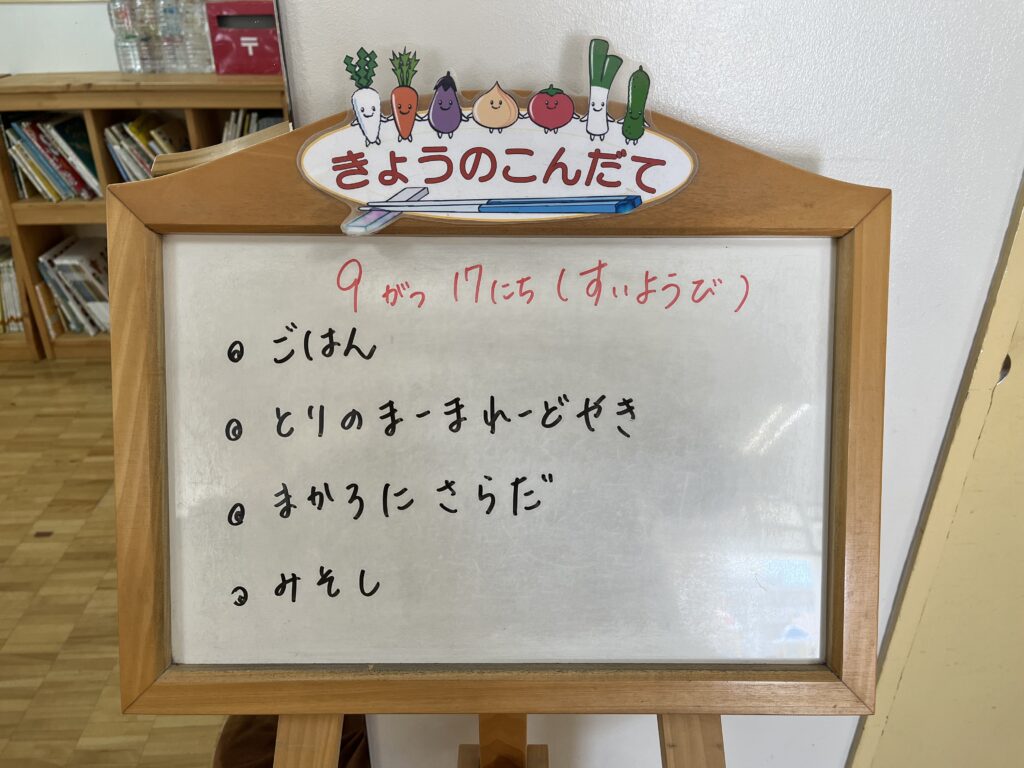 きょうのこんだて
9がつ 17にち(すいようび)
ごはん
とりのまーまれーどやき
まかろに さらだ
みそし